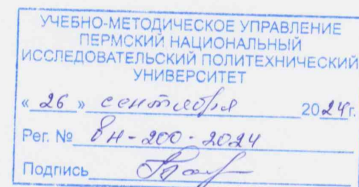 УЧЕБНО-МЕТОДИЧЕСКОЕ УПРАВЛЕНИЕ
ПЕРМСКИЙ НАЦИОНАЛЬНЫЙ
ИССЛЕДОВАТЕЛЬСКИЙ ПОЛИТЕХНИЧЕСКИЙ
УНИВЕРСИТЕТ
« 26 » сентября 2024г.
Рег. № вн-200-2024
Подпись